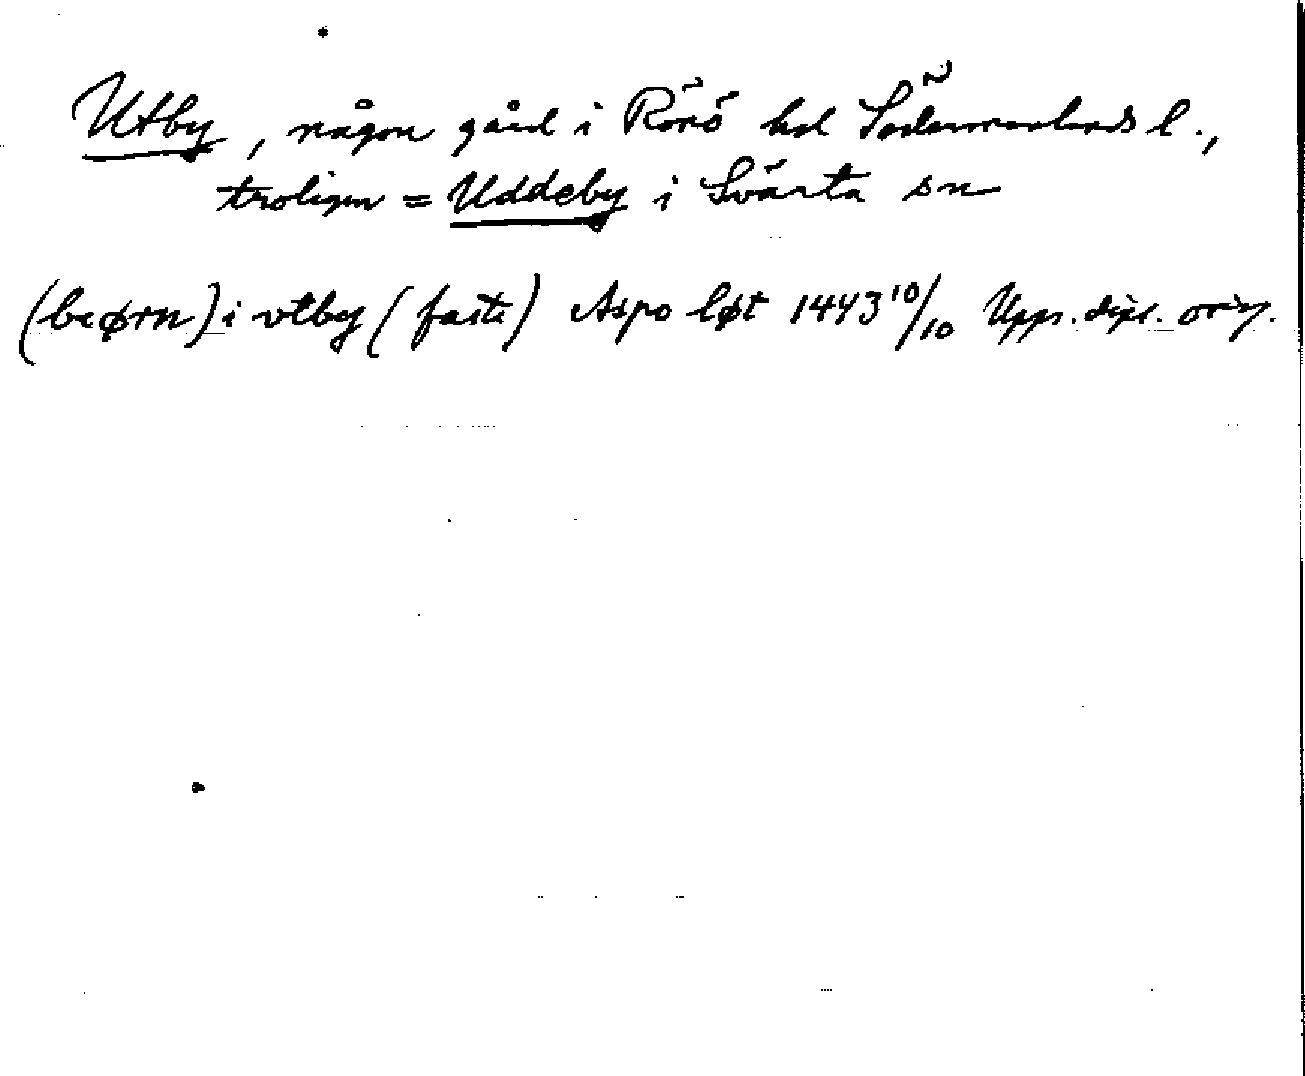 Utby, någon gård i Rönö hd Södermanlands l.,
troligen = Uddeby i Svärta sn
(beørn) i vtby (faste) Aspo løt 1443 10/10 Upps. dipl. orig.